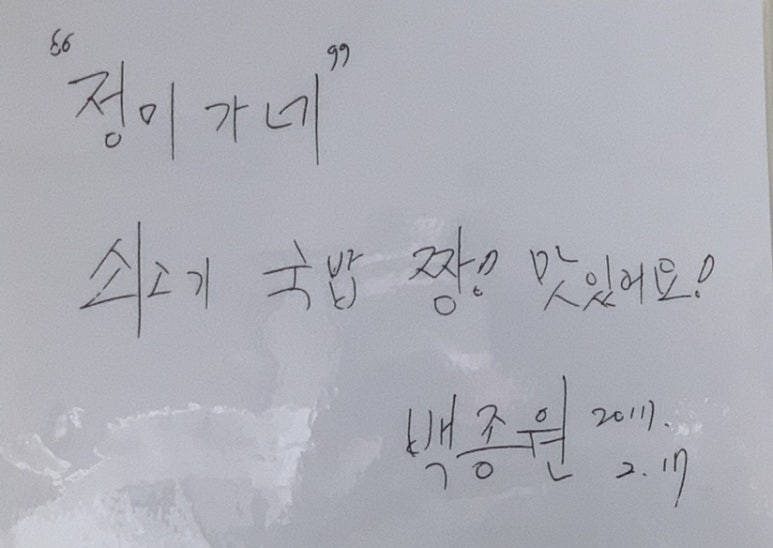 "정이가네"
쇠고기 국밥 짱! 맛있어요!
백종원 2017.
2. 17